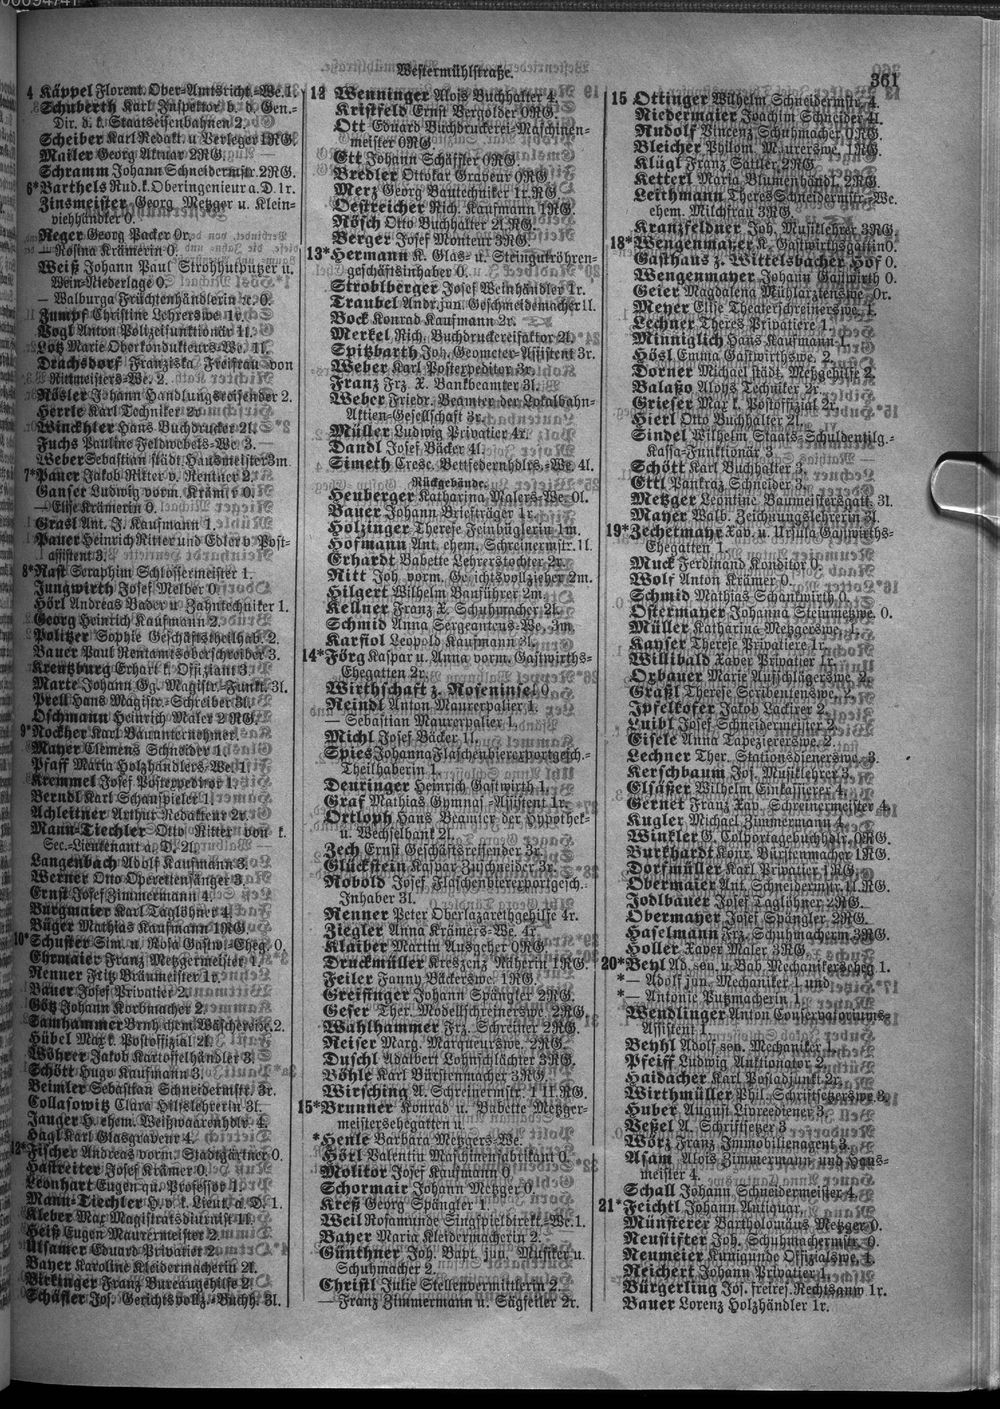 Westermühlstraße.
361
4 Käppel Florent. Ober-Amtsricht.-We. 1.
Schuberth Karl Inspektor b. d. Gen.-
Dir. d. k. Staatseisenbahnen 2.
Scheiber Karl Redakt. u. Verleger 1RG.
Mailer Georg Aktuar 2RG.
Schramm Johann Schneidermstr. 2RG.
6*Barthels Rud. k. Oberingenieur a. D. 1r.
Zinsmeister Georg Metzger u. Klein-
viehhändler 0.
Reger Georg Packer 0r.
— Rosina Krämerin 0.
Weiß Johann Paul Strohhutputzer u.
Wein-Niederlage 0.
— Walburga Früchtenhändlerin 2c. 0.
Zumpf Christine Lehrerswe. 1r.
Vogl Anton Polizeifunktionär 1l.
Lotz Marie Oberkondukteurs-We. 1l.
Drachsdorf Franziska Freifrau von
Rittmeisters-We. 2.
Rösler Johann Handlungsreisender 2.
Herrle Karl Techniker 2r.
Winckhler Hans Buchdrucker 2l.
Fuchs Pauline Feldwebels-We. 3.
Weber Sebastian städt. Hausmeister 3m.
7*Pauer Jakob Ritter v. Rentner 2.
Ganser Ludwig vorm. Krämer 0.
— Elise Krämerin 0.
Grasl Ant. J. Kaufmann 1.
Pauer Heinrich Ritter und Edler v. Post-
assistent 3.
8*Rast Seraphim Schlossermeister 1.
Jungwirth Josef Melber 0.
Hörl Andreas Bader u. Zahntechniker 1.
Georg Heinrich Kaufmann 2.
Politzer Sophie Geschäftstheilhab. 2.
Bauer Paul Rentamtsoberschreiber 3.
Krentzburg Erhart k. Offiziant 3.
Marte Johann Gg. Magistr.-Funkt. 3l.
Prell Hans Magistr.-Schreiber 3l.
Oschmann Heinrich Maler 2 RG.
9*Rockher Karl Bauunternehmer.
Mayer Clemens Schneider 1.
Pfaff Maria Holzhändlers-We. 1.
Kremmel Josef Postexpeditor 1.
Berndl Karl Schauspieler 1.
Achleitner Arthur Redakteur 2r.
Mann-Tiechler Otto Ritter von k.
Sec.-Lieutenant a. D. 2l.
Langenbach Adolf Kaufmann 3.
Werner Otto Operettensänger 3.
Ernst Josef Zimmermann 4.
Burgmaier Karl Taglöhner 4.
Büger Mathias Kaufmann 1RG.
10*Schuster Sim. u. Rosa Gastw.-Eheg. 0.
Ehrmaier Franz Metzgermeister 1.
Renner Fritz Bräumeister 1r.
Bauer Josef Privatier 2.
Götz Johann Korbmacher 2.
Samhammer Brnh. chem. Wäschereibes. 2.
Hübel Max k. Postoffizial 2l.
Wöhrer Jakob Kartoffelhändler 3.
Schött Hugo Kaufmann 3.
Beimler Sebastian Schneidermstr. 3r.
Collasowitz Clara Hilfslehrerin 3l.
Jauger H. ehem. Weißwaarenhdlr. 4.
Hagl Karl Glasgraveur 4.
12*Fischer Andreas vorm. Stadtgärtner 0.
Hastreiter Josef Krämer 0.
Leonhart Eugen qu. Professor 1.
Mann-Tiechler H. v. k. Lieut. a. D. 1.
Kleber Max Magistratsdiurnist 1l.
Heiß Eugen Maurermeister 2.
Ulsamer Eduard Privatier 2.
Bayer Karoline Kleidermacherin 2l.
Birkinger Franz Bureaugehilfe 2.
Schäfler Jos. Gerichtsvollz.-Buchh. 3l.
12 Wenninger Alois Buchhalter 4.
Kristfeld Ernst Vergolder 0RG.
Ott Eduard Buchdruckerei-Maschinen-
meister 0RG.
Ett Johann Schäffler 0RG.
Bredler Ottokar Graveur 0RG.
Merz Georg Bautechniker 1r.RG.
Oestreicher Rich. Kaufmann 1RG.
Rösch Otto Buchhalter 2l.RG.
Berger Josef Monteur 3RG.
13*Hermann K. Glas- u. Steingutröhren-
geschäftsinhaber 0.
Stroblberger Josef Weinhändler 1r.
Traubel Andr. jun. Geschmeidemacher 1l.
Bock Konrad Kaufmann 2r.
Merkel Rich. Buchdruckereifaktor 2l.
Spitzbarth Joh. Geometer-Assistent 3r.
Weber Karl Postexpeditor 3r.
Franz Frz. X. Bankbeamter 3l.
Weber Friedr. Beamter der Lokalbahn-
Aktien-Gesellschaft 3r.
Müller Ludwig Privatier 4r.
Dandl Josef Bäcker 4l.
Simeth Cresc. Bettfedernhdlrs.-We. 4l.
Rückgebäude.
Heuberger Katharina Malers-We. 0l.
Bauer Johann Briefträger 1r.
Holzinger Therese Feinbüglerin 1m.
Hofmann Ant. ehem. Schreinermstr. 1l.
Erhardt Babette Lehrerstochter 2r.
Ritt Joh. vorm. Gerichtsvollzieher 2m.
Hilgert Wilhelm Bauführer 2m.
Kellner Franz X. Schuhmacher 2l.
Schmid Anna Sergeantens-We. 3m.
Karstol Leopold Kaufmann 3l.
14*Förg Kaspar u. Anna vorm. Gastwirths-
Ehegatten 2r.
Wirthschaft z. Roseninsel 0.
Reindl Anton Maurerpalier 1.
— Sebastian Maurerpalier 1.
Michl Josef Bäcker 1l.
Spies Johanna Flaschenbierexportgesch.-
Theilhaberin 1.
Deuringer Heinrich Gastwirth 1.
Graf Mathias Gymnas.-Assistent 1r.
Ortloph Hans Beamter der Hypothek-
u. Wechselbank 2l.
Zech Ernst Geschäftsreisender 3r.
Glückstein Kaspar Zuschneider 3r.
Robold Josef Flaschenbierexportgesch.
Inhaber 3l.
Renner Peter Oberlazarethgehilfe 4r.
Ziegler Anna Krämers-We. 4r.
Klaiber Martin Ausgeher 0RG.
Druckmüller Kreszenz Näherin 1RG.
Feiler Fanny Bäckerswe. 1RG.
Greifinger Johann Spängler 2RG.
Geser Ther. Modellschreinerswe. 2RG.
Wahlhammer Frz. Schreiner 2RG.
Reiser Marg. Marqueurswe. 2RG.
Duschl Adalbert Lohnschlächter 3RG.
Böhle Karl Bürstenmacher 3RG.
Wirsching A. Schreinermstr. 1 II.RG.
15*Brunner Konrad u. Babette Metzger-
meistersehegatten u.
*Henle Barbara Metzgers-We.
Hörl Valentin Maschinenfabrikant 0.
Molitor Josef Kaufmann 0.
Schormair Johann Metzger 0.
Kreß Georg Spängler 1.
Weil Rosamunde Singspieldirekt.-We. 1.
Bayer Maria Kleidermacherin 2.
Günthner Joh. Bapt. jun. Musiker u.
Schuhmacher 2.
Christl Julie Stellenvermittlerin 2.
— Franz Zimmermann u. Sägfeiler 2r.
15 Ottinger Wilhelm Schneidermstr. 4.
Niedermaier Joachim Schneider 4l.
Rudolf Vincenz Schuhmacher 0RG.
Bleicher Phllom. Maurerswe. 1RG.
Klügl Franz Sattler 2RG.
Ketterl Maria Blumenhändl. 2RG.
Leithmann Theres Schneidermstr.-We.
ehem. Milchfrau 3RG.
Kranzfeldner Joh. Musiklehrer 3RG.
18*Wengenmayer K. Gastwirthsgattin 0.
Gasthaus z. Wittelsbacher Hof 0.
Wengenmayer Johann Gastwirth 0.
Geier Magdalena Mühlarztenswe. 0r.
Meyer Elise Theaterschreinerswe. 1.
Lechner Theres Privatiere 1.
Minniglich Hans Kaufmann 1.
Hösl Emma Gastwirthswe. 2.
Dorner Michael städt. Metzgehilfe 2.
Balaßo Aloys Techniker 2r.
Grieser Max k. Postoffizial 2r.
Hierl Otto Buchhalter 2l.
Sindel Wilhelm Staats-Schuldentilg.-
Kassa-Funktionär 3.
Schött Karl Buchhalter 3.
Ettl Pankraz Schneider 3.
Metzger Leontine Baumeistersgatt. 3l.
Mayer Walb. Zeichnungslehrerin 3l.
19*Zechetmayr Xav. u. Ursula Gastwirths-
Ehegatten 1.
Muck Ferdinand Konditor 0.
Wolf Anton Krämer 0.
Schmid Mathias Schankwirth 0.
Ostermayer Johanna Steinmetzwe. 0.
Müller Katharina Metzgerswe. 1.
Kayser Therese Privatiere 1r.
Willibald Xaver Privatier 1r.
Oxbauer Marie Aufschlägerswe. 2.
Graßl Therese Scribentenswe. 2.
Ipfelkofer Jakob Lackirer 2.
Luibl Josef Schneidermeister 2.
Eisele Anna Tapeziererswe. 2.
Lechner Ther. Stationsdienerswe. 3.
Kerschbaum Jos. Musiklehrer 3.
Elsäßer Wilhelm Einkassierer 4.
Gernet Franz Xav. Schreinermeister 4.
Kugler Michael Zimmermann 4.
Winkler G. Colportagebuchhdlr. 0RG.
Burkhardt Konr. Bürstenmacher 1RG.
Dorfmüller Karl Privatier 1RG.
Obermaier Ant. Schneidermstr. 1l.RG.
Jodlbauer Josef Taglöhner 2RG.
Obermayer Josef Spängler 2RG.
Haselmann Frz. Schuhmacherm. 3RG.
Holler Xaver Maler 3RG.
20*Beyl Ad. sen. u. Bab. Mechanikerseheg. 1.
*— Adolf jun. Mechaniker 1. und
*— Antonie Putzmacherin 1.
Wendlinger Anton Conservatoriums-
Assistent 1.
Beyhl Adolf sen. Mechaniker 1.
Pfeiff Ludwig Auktionator 2.
Haidacher Karl Postadjunkt 2r.
Wirthmüller Phil. Schriftsetzerswe. 3.
Huber August Livreediener 3.
Beßel A. Schriftsetzer 3.
Wörz Franz Immobilienagent 3.
Asam Alois Zimmermann und Haus-
meister 4.
Schall Johann Schneidermeister 4.
21*Feichtl Johann Antiquar.
Münsterer Bartholomäus Metzger 0.
Neustifter Joh. Schuhmachermstr. 0.
Neumeier Kunigunde Offizialswe. 1.
Reichert Johann Privatier 1.
Bürgerling Jos. freires. Rechtsanw. 1r.
Bauer Lorenz Holzhändler 1r.